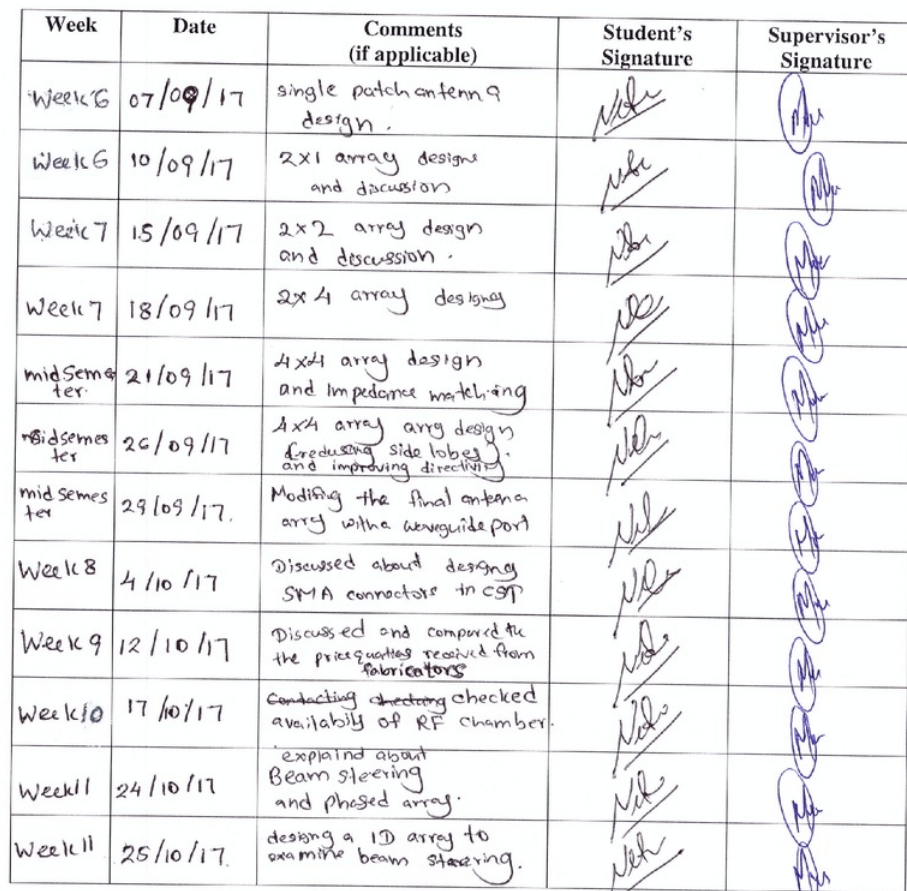 Week Date Comments Student's Supervisor's
(if applicable) Signature Signature
Week 6 07/09/17 single patch antenna
design.
Week 6 10/09/17 2x1 array designs
and discussion
Week 7 15/09/17 2x2 array design
and descussion.
Week 7 18/09/17 2x4 array designs
midSemes 21/09/17 4x4 array design
ter. and impedance matching
midsemes 26/09/17 4x4 array arry design
ter (redusing side lobes).
and improving directivity
mid semes 29/09/17. Modifing the final antena
ter arry with a waveguide port
Week 8 4/10/17 Discussed about designg
SMA connectors in CST
Week 9 12/10/17 Discussed and compared the
the price received from
fabricators
Week 10 17/10/17 Contacting checking checked
availabily of RF chamber.
explaind about
Week 11 24/10/17 Beam steering
and phased array.
Week 11 25/10/17. designg a 1D array to
examine beam steering.